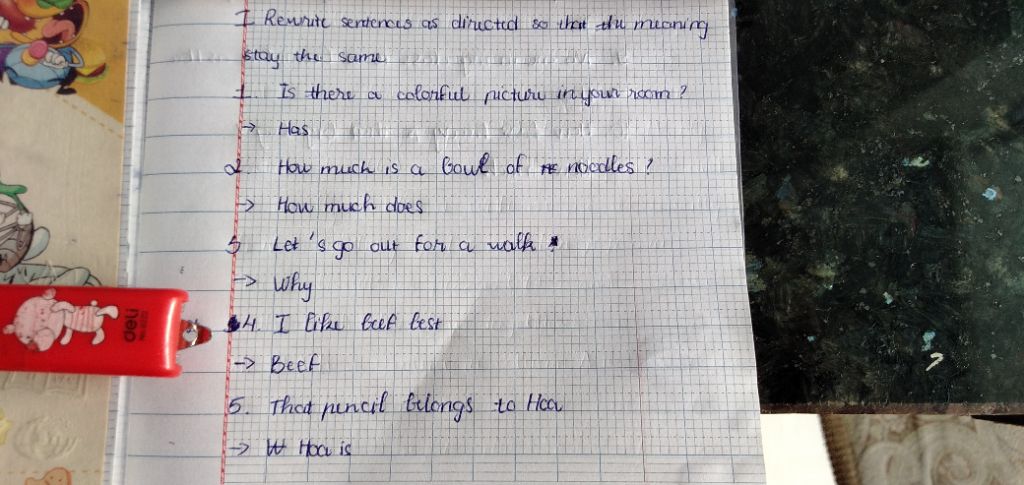 I Rewrite sentences as directed so that the meaning
stay the same
1. Is there a colorful picture in your room ?
→ Has
2 How much is a bowl of noodles ?
→ How much does
3 Let 's go out for a walk
→ Why
4. I like beef best
→ Beef
5. That pencil belongs to Hoa
→ Hoa is
deli